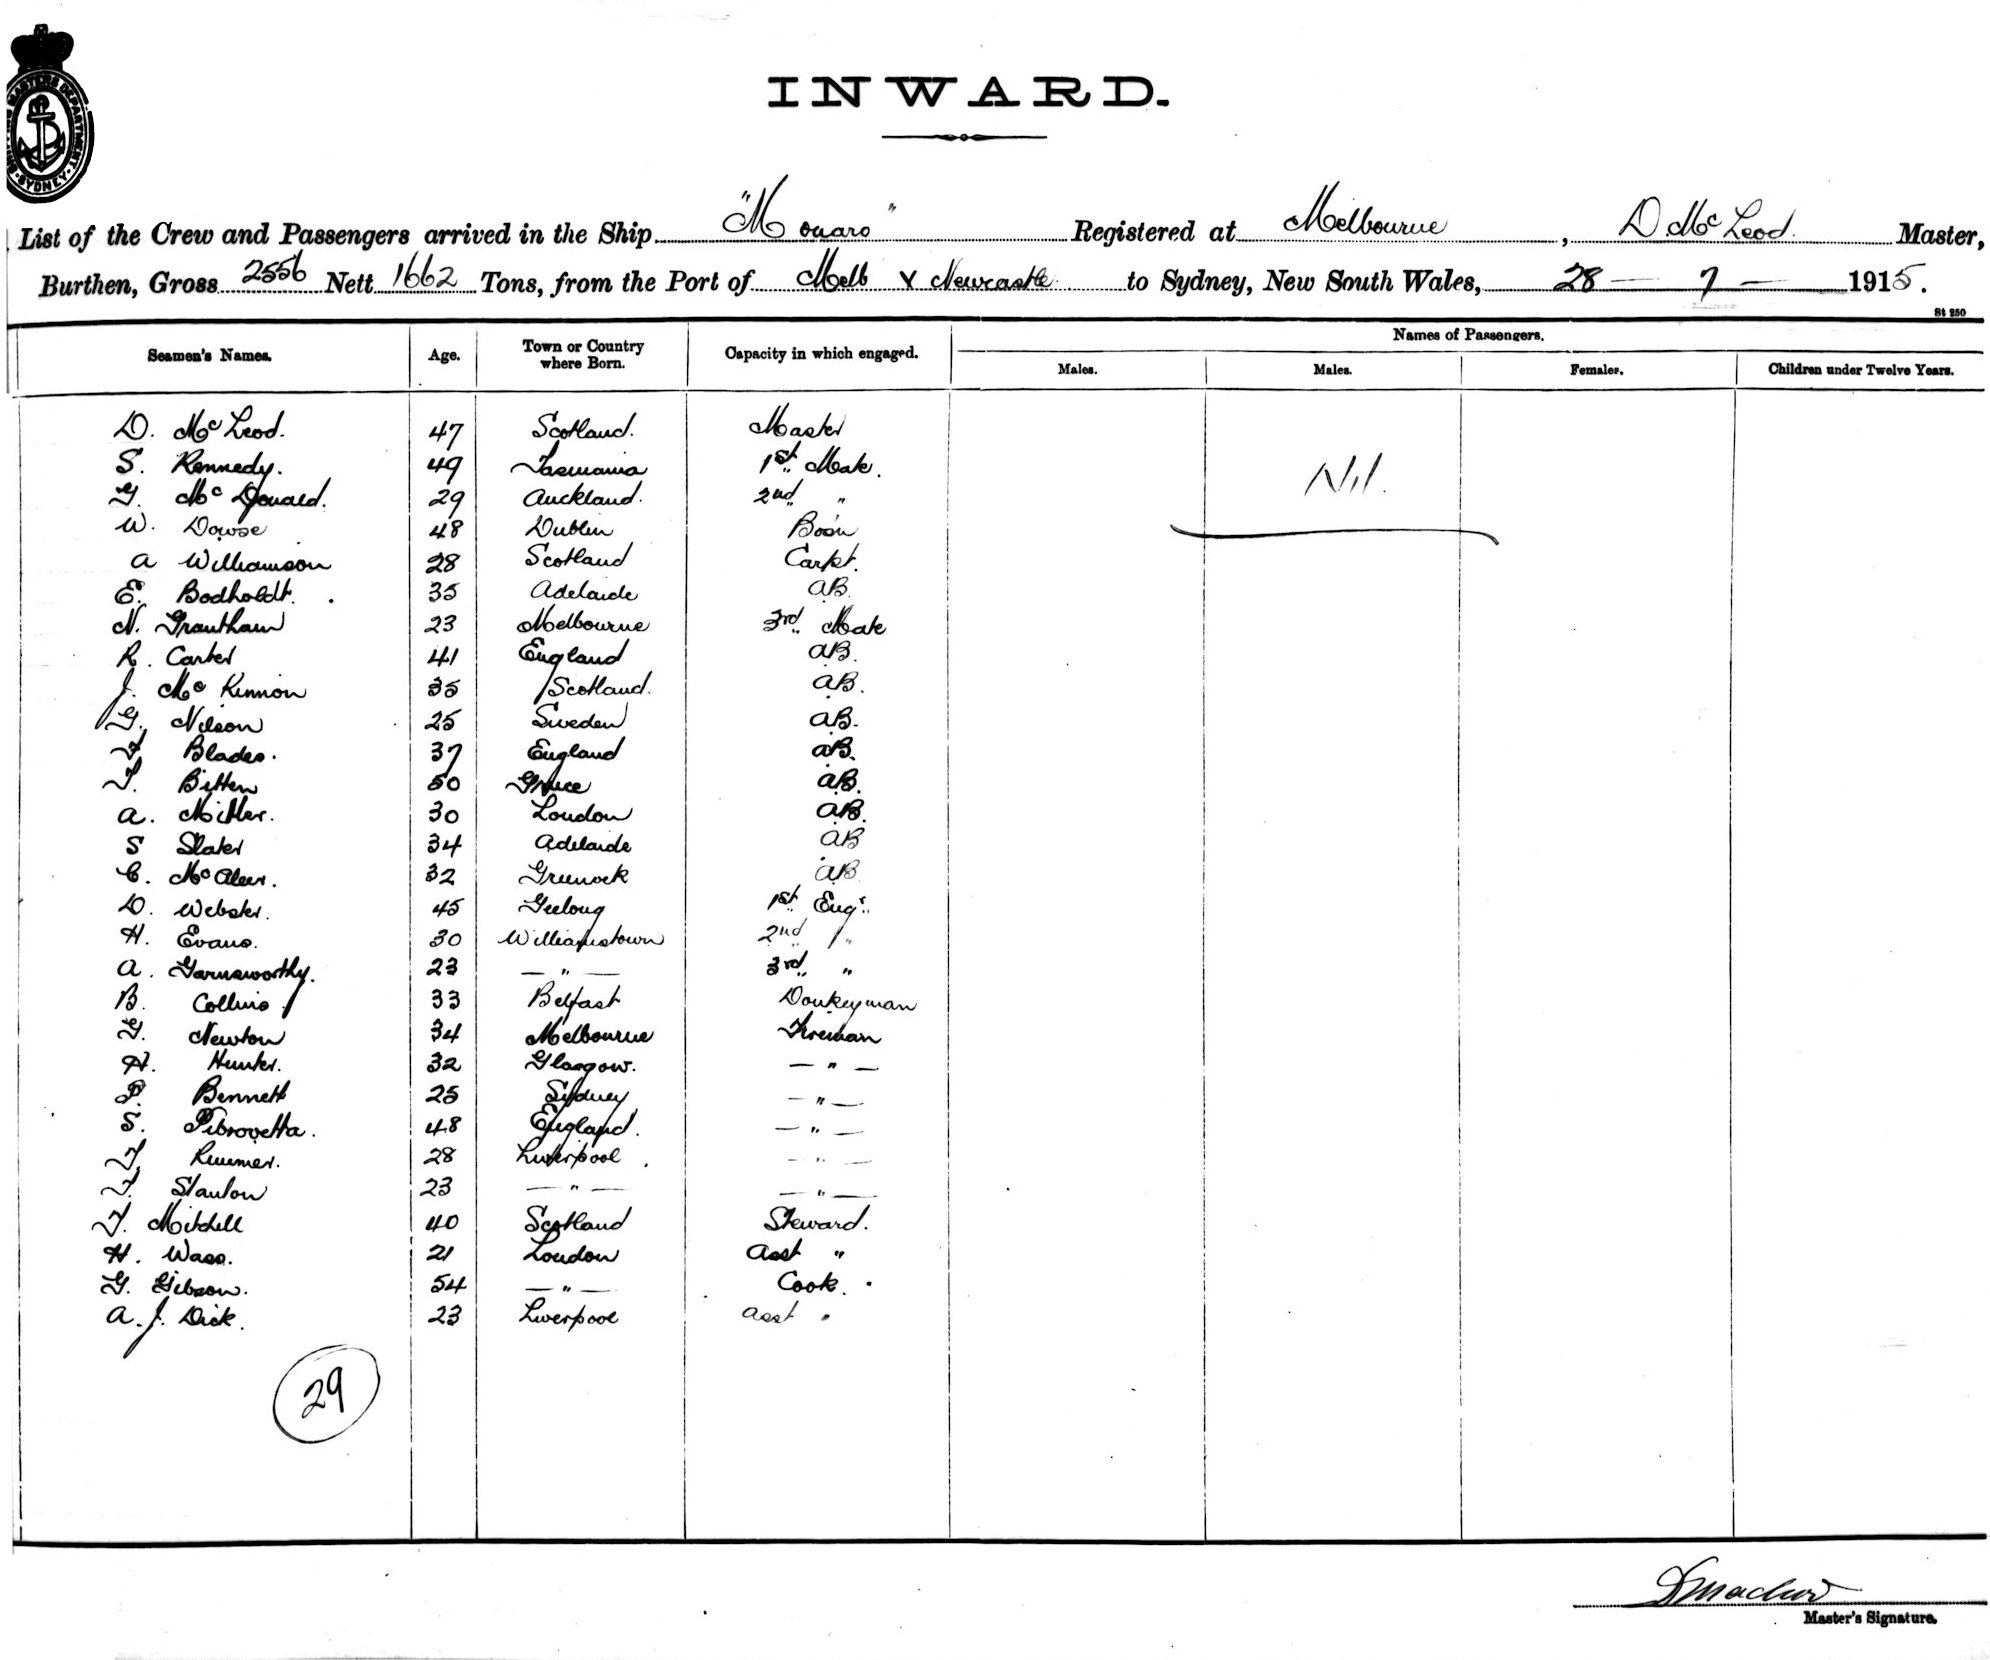 SHIPPING MASTERS DEPARTMENT · SYDNEY ·
INWARD.
List of the Crew and Passengers arrived in the Ship "Monaro" Registered at Melbourne, D. McLeod. Master,
Burthen, Gross 2556 Nett 1662 Tons, from the Port of Melb & Newcastle to Sydney, New South Wales, 28 — 7 — 1915.
St 250
Seamen's Names. Age. Town or Country where Born. Capacity in which engaged. Names of Passengers.
Males. Males. Females. Children under Twelve Years.
D. McLeod. 47 Scotland. Master
S. Kennedy. 49 Tasmania 1st Mate.
G. McDonald. 29 Auckland. 2nd "
Nil.
W. Dowse 48 Dublin Bosn
A Williamson 28 Scotland Carpt.
E. Bodholdt. 35 Adelaide AB.
N. Grantham 23 Melbourne 3rd Mate
R. Carter 41 England AB.
J. McKinnon 35 Scotland. AB.
G. Nilson 25 Sweden AB.
F Blades. 37 England AB.
T. Bitten 50 Greece AB.
A. Miller. 30 London AB.
S Slater 34 Adelaide AB
C. McAleer. 32 Greenock AB
D. Webster. 45 Geelong 1st Engr.
H. Evans. 30 Williamstown 2nd "
A. Garnsworthy. 23 — " — 3rd "
B. Collins 33 Belfast Donkeyman
G. Newton 34 Melbourne Fireman
H. Hunter. 32 Glasgow. — " —
P. Bennett 25 Sydney — " —
S. Pibrovetta. 48 England. — " —
F. Rimmer. 28 Liverpool. — " —
F. Stanton 23 — " — — " —
F. Mitchell 40 Scotland Steward.
H. Wass. 21 London Asst "
G. Gibson. 54 — " — Cook.
A. J. Dick. 23 Liverpool Asst "
29
Master's Signature.